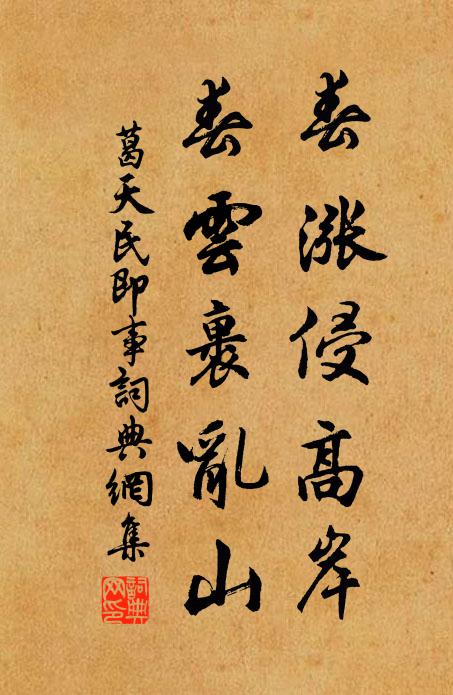 春漲侵高岸
春雲裹亂山
葛天民即事詞典網集